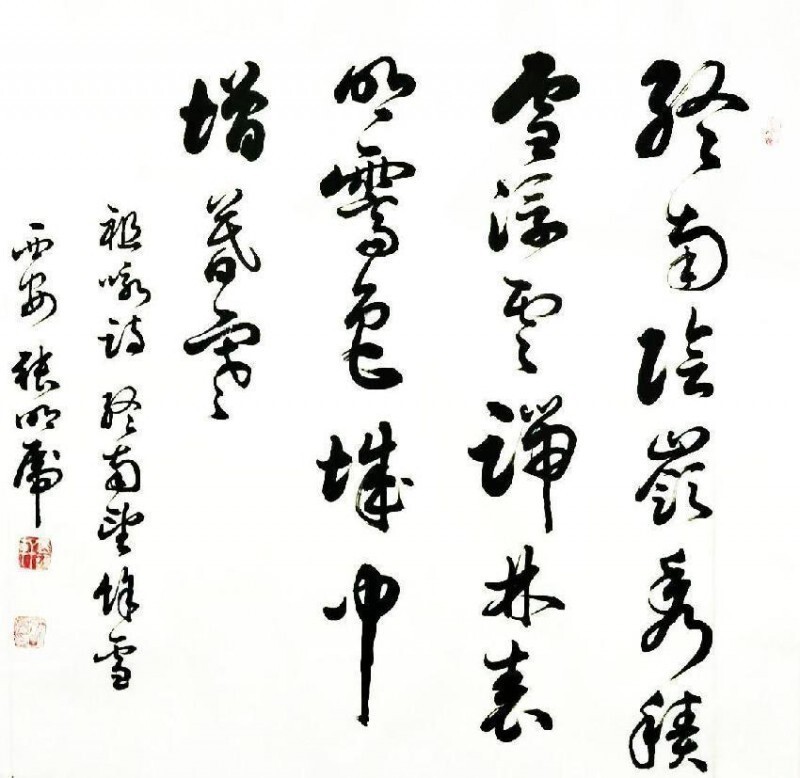 終南陰嶺秀積
雪浮雲端林表
明霽色城中
增暮寒
祖咏詩終南望餘雪
西安張明虎